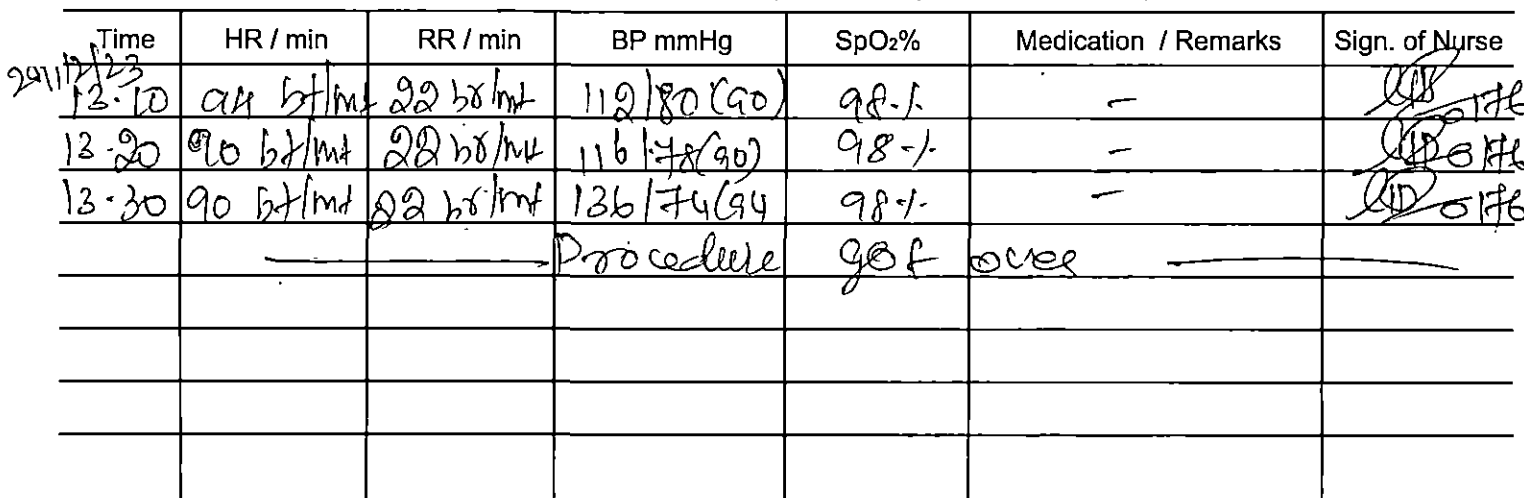 Time HR / min RR / min BP mmHg SpO₂% Medication / Remarks Sign. of Nurse
29/12/23
13.10 94 bt/mt 22 br/mt 112/80 (90) 98-/. - 0176
13.20 90 bt/mt 22 br/mt 116/78(90) 98-/. - 0176
13.30 90 bt/mt 22 br/mt 136/74(94 98-/. - 0176
Procedure got over